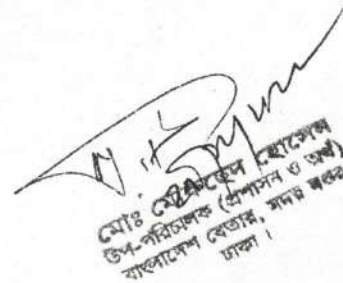 মোঃ হোসেন
উপ-পরিচালক (প্রশাসন ও অর্থ)
বাংলাদেশ বেতার, সদর দপ্তর
ঢাকা ।